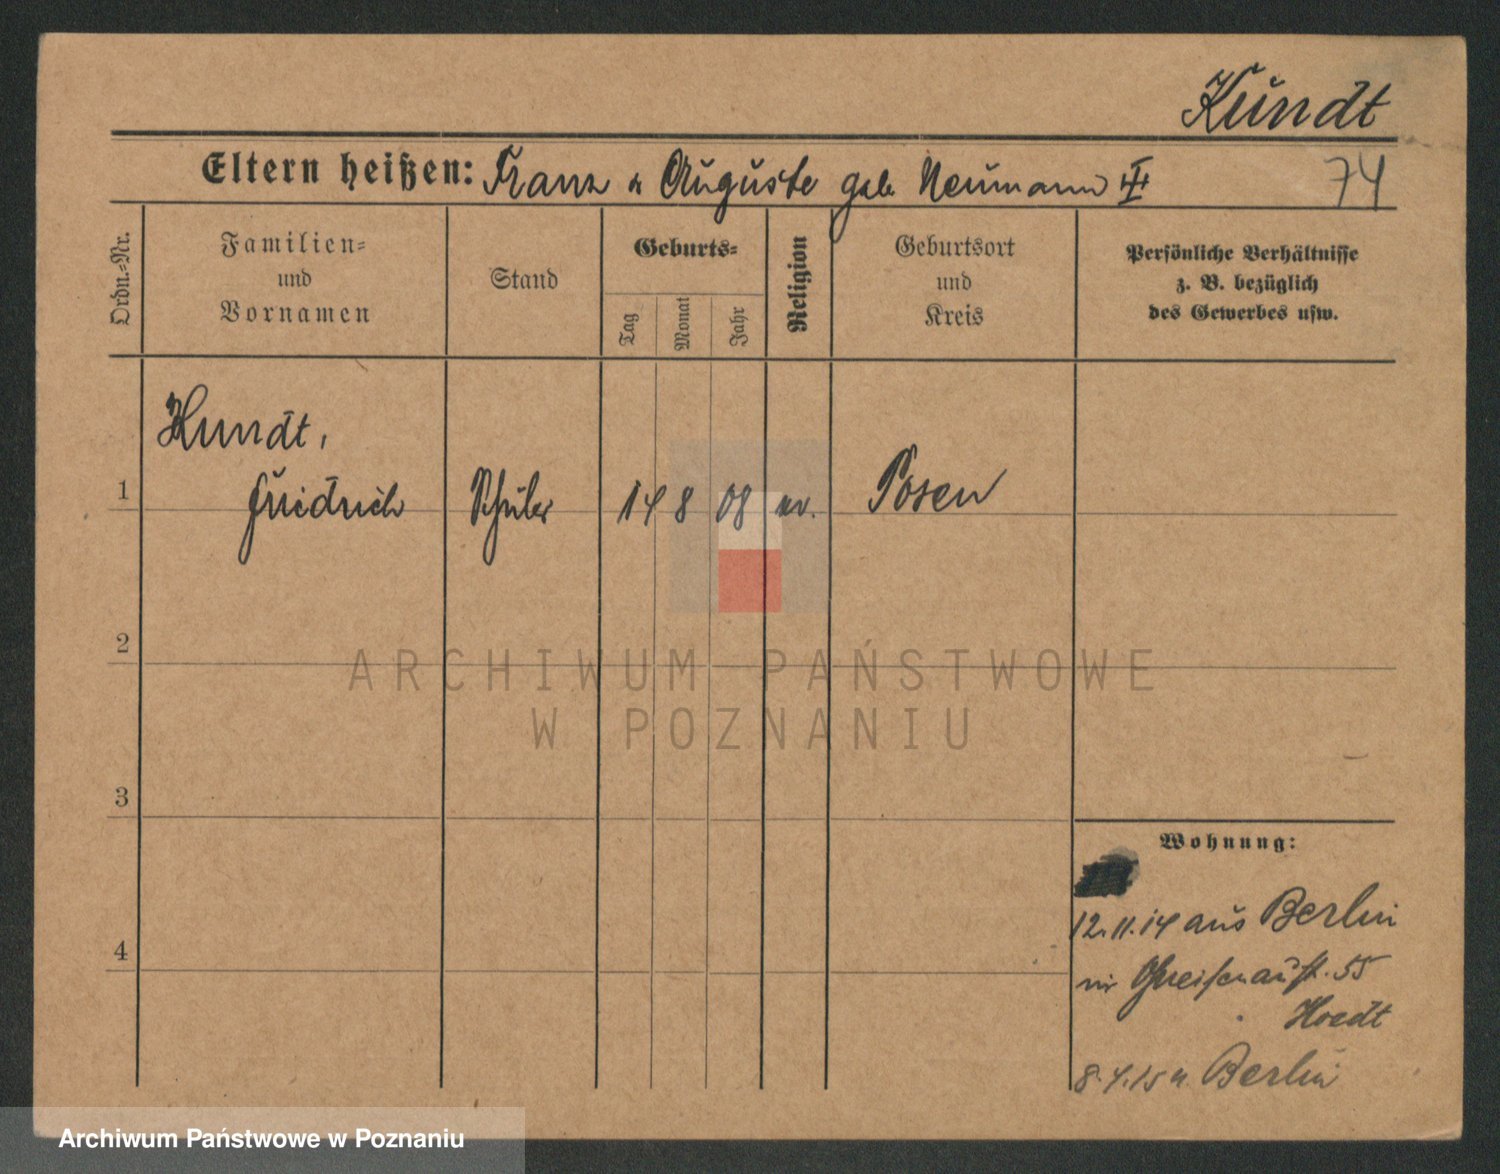 Kundt
Eltern heißen: Franz u Auguste geb. Neumann III
74
Ordn.=Nr.
Familien=
und
Vornamen
Stand
Geburts=
Tag
Monat
Jahr
Religion
Geburtsort
und
Kreis
Persönliche Verhältnisse
z. B. bezüglich
des Gewerbes usw.
Kundt,
1 Friedrich Schüler 14 8 08 ev. Posen
2
ARCHIWUM PAŃSTWOWE
W POZNANIU
3
Wohnung:
12.11.14 aus Berlin
4
55
8.4.15 n. Berlin
Archiwum Państwowe w Poznaniu